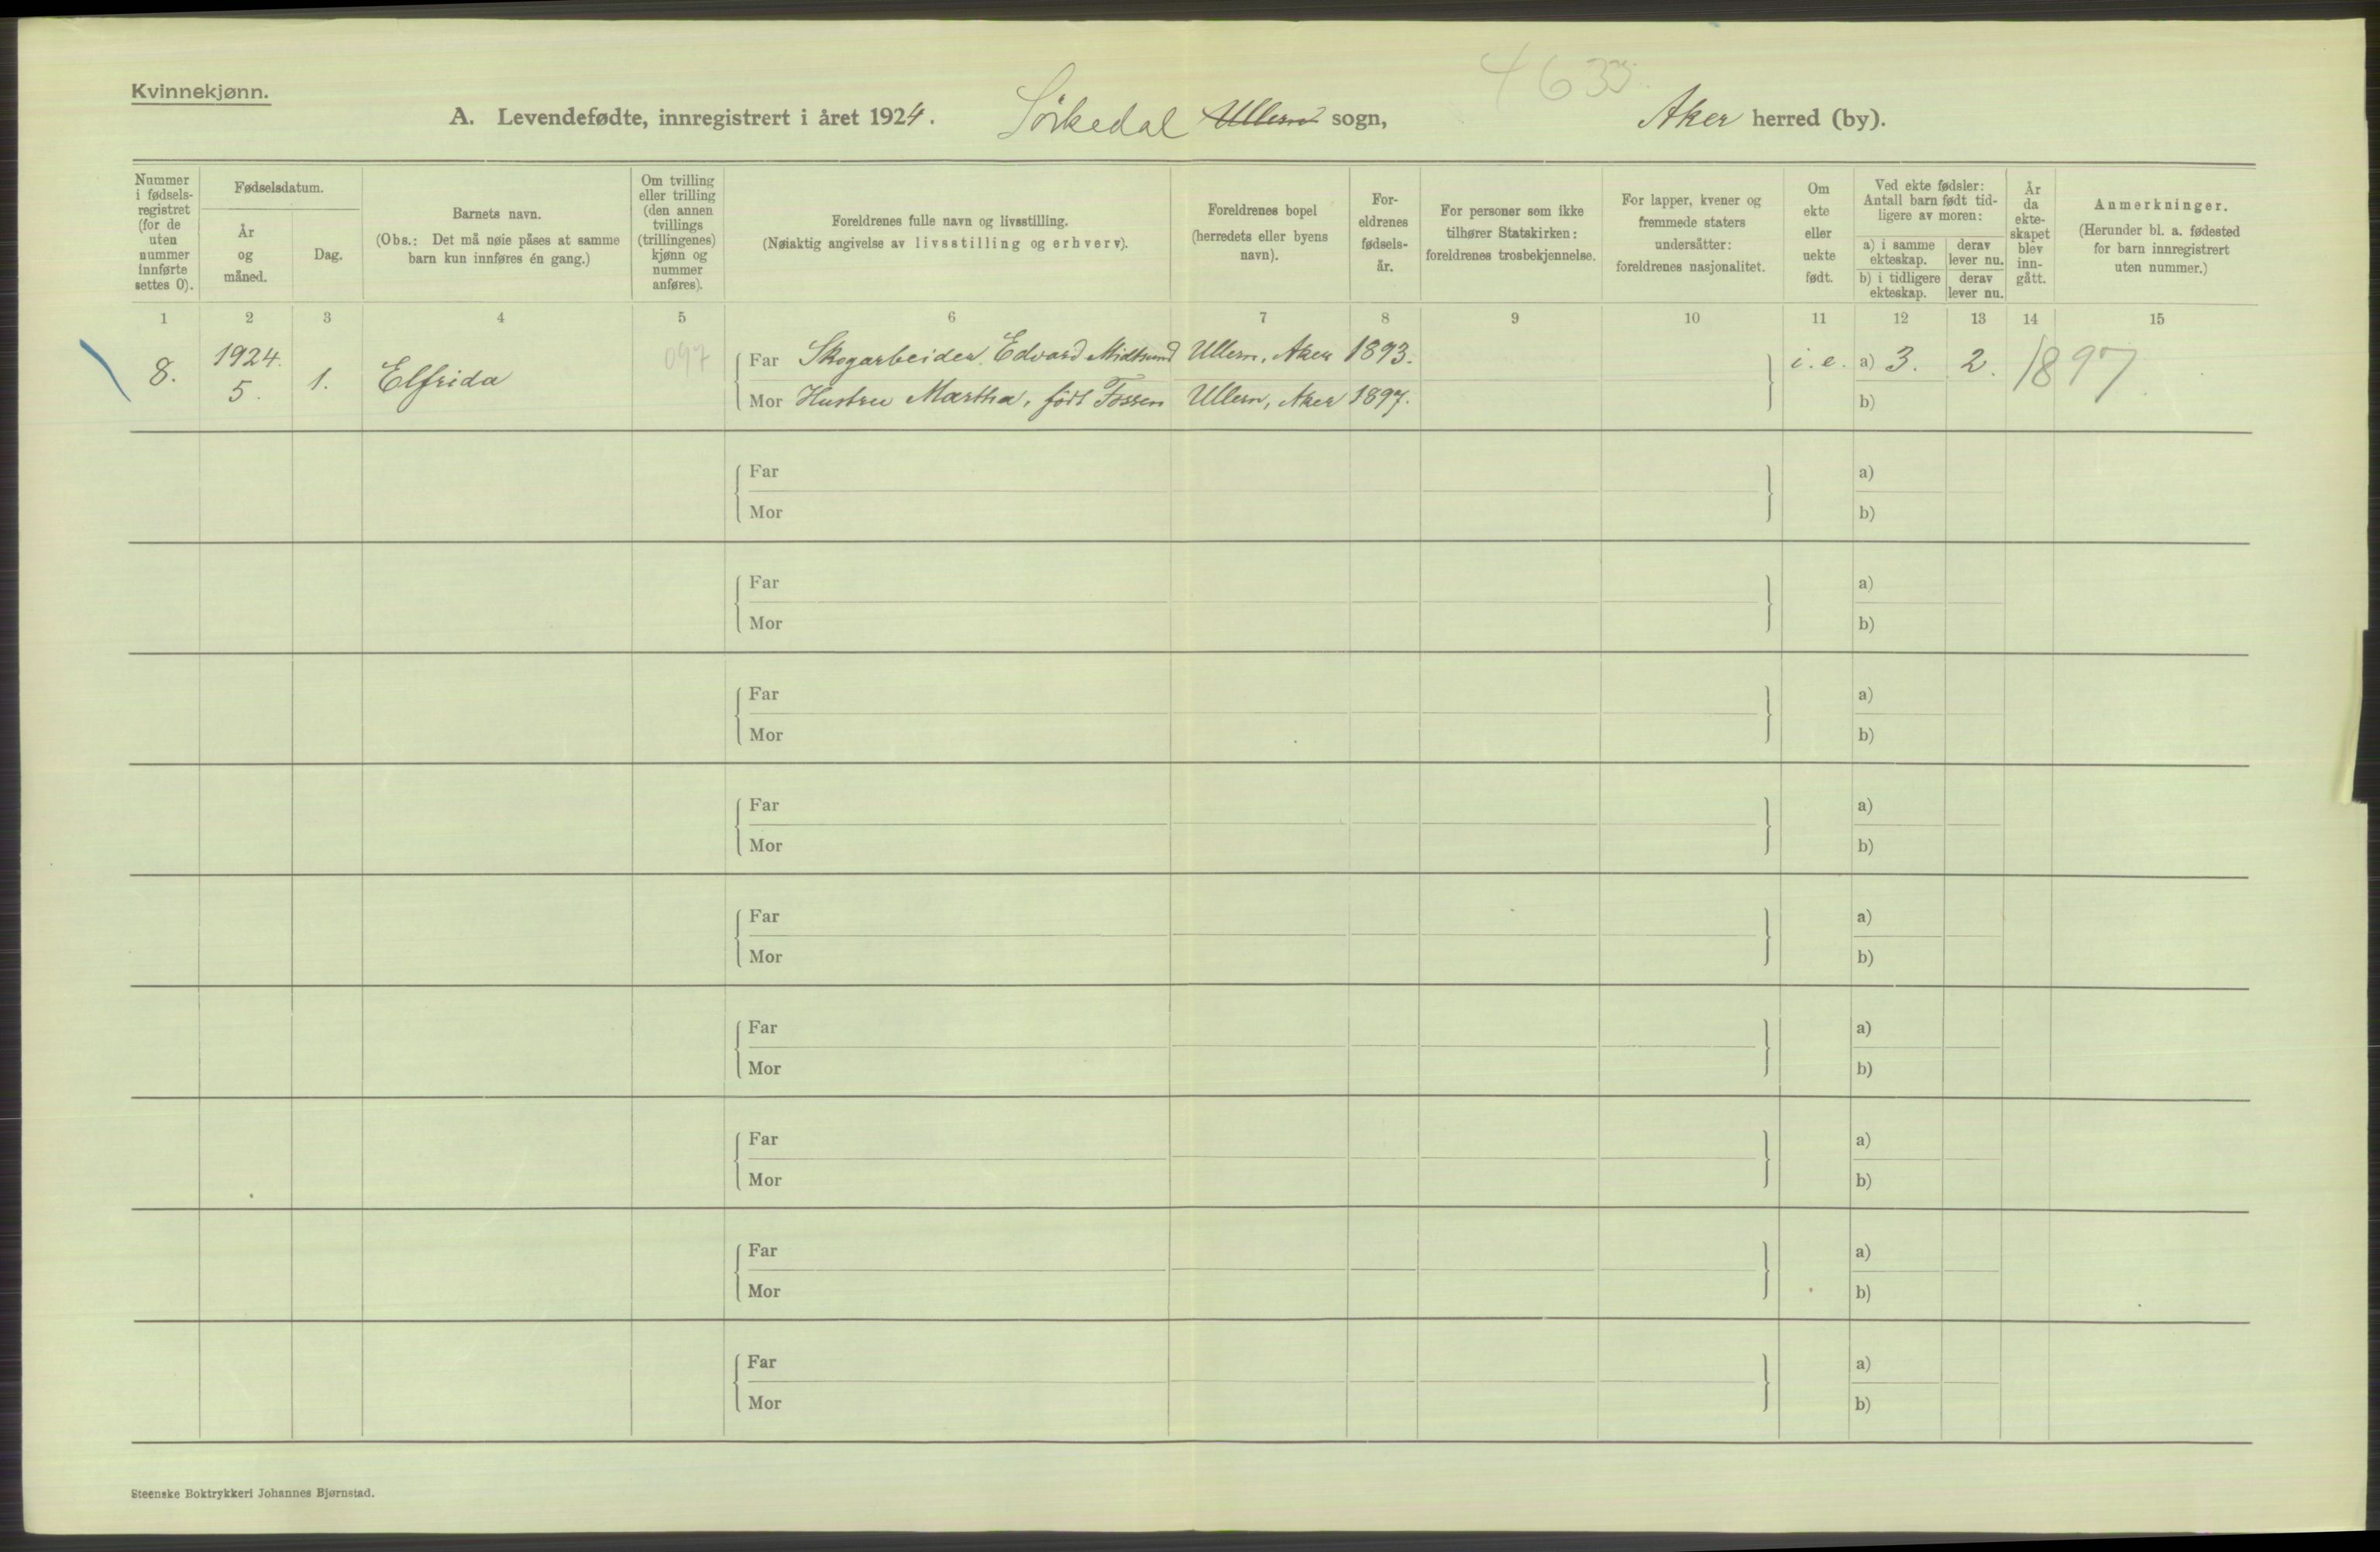 4633
Kvinnekjønn.
A. Levendefødte, innregistrert i året 1924. Sörkedal Ullern sogn, Aker herred (by).
Nummer
i fødsels-
registret
(for de
uten
nummer
innførte
settes 0).
Fødselsdatum.
År
og
måned.
Dag.
Barnets navn.
(Obs.: Det må nøie påses at samme
barn kun innføres én gang.)
Om tvilling
eller trilling
(den annen
tvillings
(trillingenes)
kjønn og
nummer
anføres).
Foreldrenes fulle navn og livsstilling.
(Nøiaktig angivelse av livsstilling og erhverv).
Foreldrenes bopel
(herredets eller byens
navn).
For-
eldrenes
fødsels-
år.
For personer som ikke
tilhører Statskirken:
foreldrenes trosbekjennelse.
For lapper, kvener og
fremmede staters
undersåtter:
foreldrenes nasjonalitet.
Om
ekte
eller
uekte
født.
Ved ekte fødsler:
Antall barn født tid-
ligere av moren:
a) i samme
ekteskap.
derav
lever nu.
b) i tidligere
ekteskap.
derav
lever nu.
År
da
ekte-
skapet
blev
inn-
gått.
Anmerkninger.
(Herunder bl. a. fødested
for barn innregistrert
uten nummer.)
1 2 3 4 5 6 7 8 9 10 11 12 13 14 15
8. 1924. 5. 1. Elfrida 097
Far Skogarbeider Edvard Midtsund Ullern, Aker 1893. i. e. a) 3. 2. 1897
Mor Hustru Martha, født Fossen Ullern, Aker 1897. b)
Far a)
Mor b)
Far a)
Mor b)
Far a)
Mor b)
Far a)
Mor b)
Far a)
Mor b)
Far a)
Mor b)
Far a)
Mor b)
Far a)
Mor b)
Far a)
Mor b)
Steenske Boktrykkeri Johannes Bjørnstad.